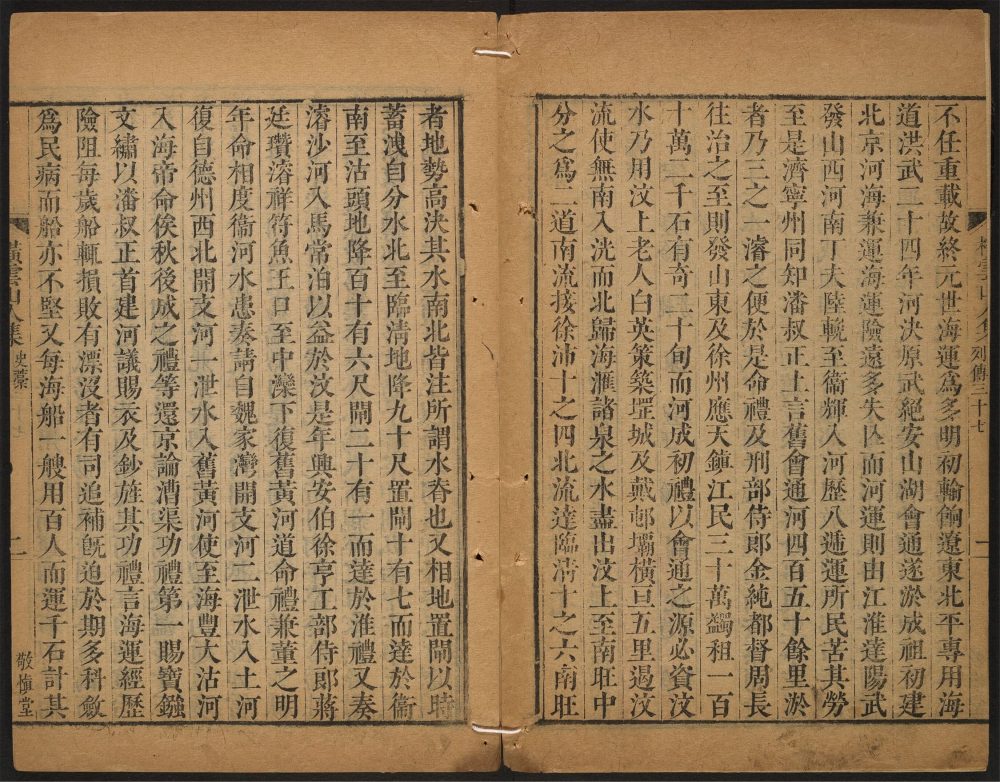 不任重載故終元世海運爲多明初輸餉遼東北平專用海
道洪武二十四年河決原武絕安山湖會通遂淤成祖初建
北京河海兼運海運險遠多失亡而河運則由江淮達陽武
發山西河南丁夫陸輓至衞輝入河歷八遞運所民苦其勞
至是濟寧州同知潘叔正上言舊會通河四百五十餘里淤
者乃三之一濬之便於是命禮及刑部侍郎金純都督周長
往治之至則發山東及徐州應天鎮江民三十萬蠲租一百
十萬二千石有奇二十旬而河成初禮以會通之源必資汶
水乃用汶上老人白英策築堽城及戴邨壩橫亘五里遏汶
流使無南入洸而北歸海滙諸泉之水盡出汶上至南旺中
分之爲二道南流接徐沛十之四北流達臨清十之六南旺
橫雲山人集
列傳三十七
一
者地勢高決其水南北皆注所謂水脊也又相地置閘以時
蓄洩自分水北至臨清地降九十尺置閘十有七而達於衞
南至沽頭地降百十有六尺閘二十有一而達於淮禮又奏
濬沙河入馬常泊以益於汶是年興安伯徐亨工部侍郎蔣
廷瓚濬祥符魚王口至中灤下復舊黃河道命禮兼董之明
年命相度衞河水患奏請自魏家灣開支河二泄水入土河
復自德州西北開支河一泄水入舊黃河使至海豐大沽河
入海帝命俟秋後成之禮等還京論漕渠功禮第一賜寶鏹
文繡以潘叔正首建河議賜衣及鈔旌其功禮言海運經歷
險阻每歲船輒損敗有漂沒者有司追補旣迫於期多科斂
爲民病而船亦不堅又每海船一艘用百人而運千石計其
橫雲山人集
史藁
二
敬愼堂